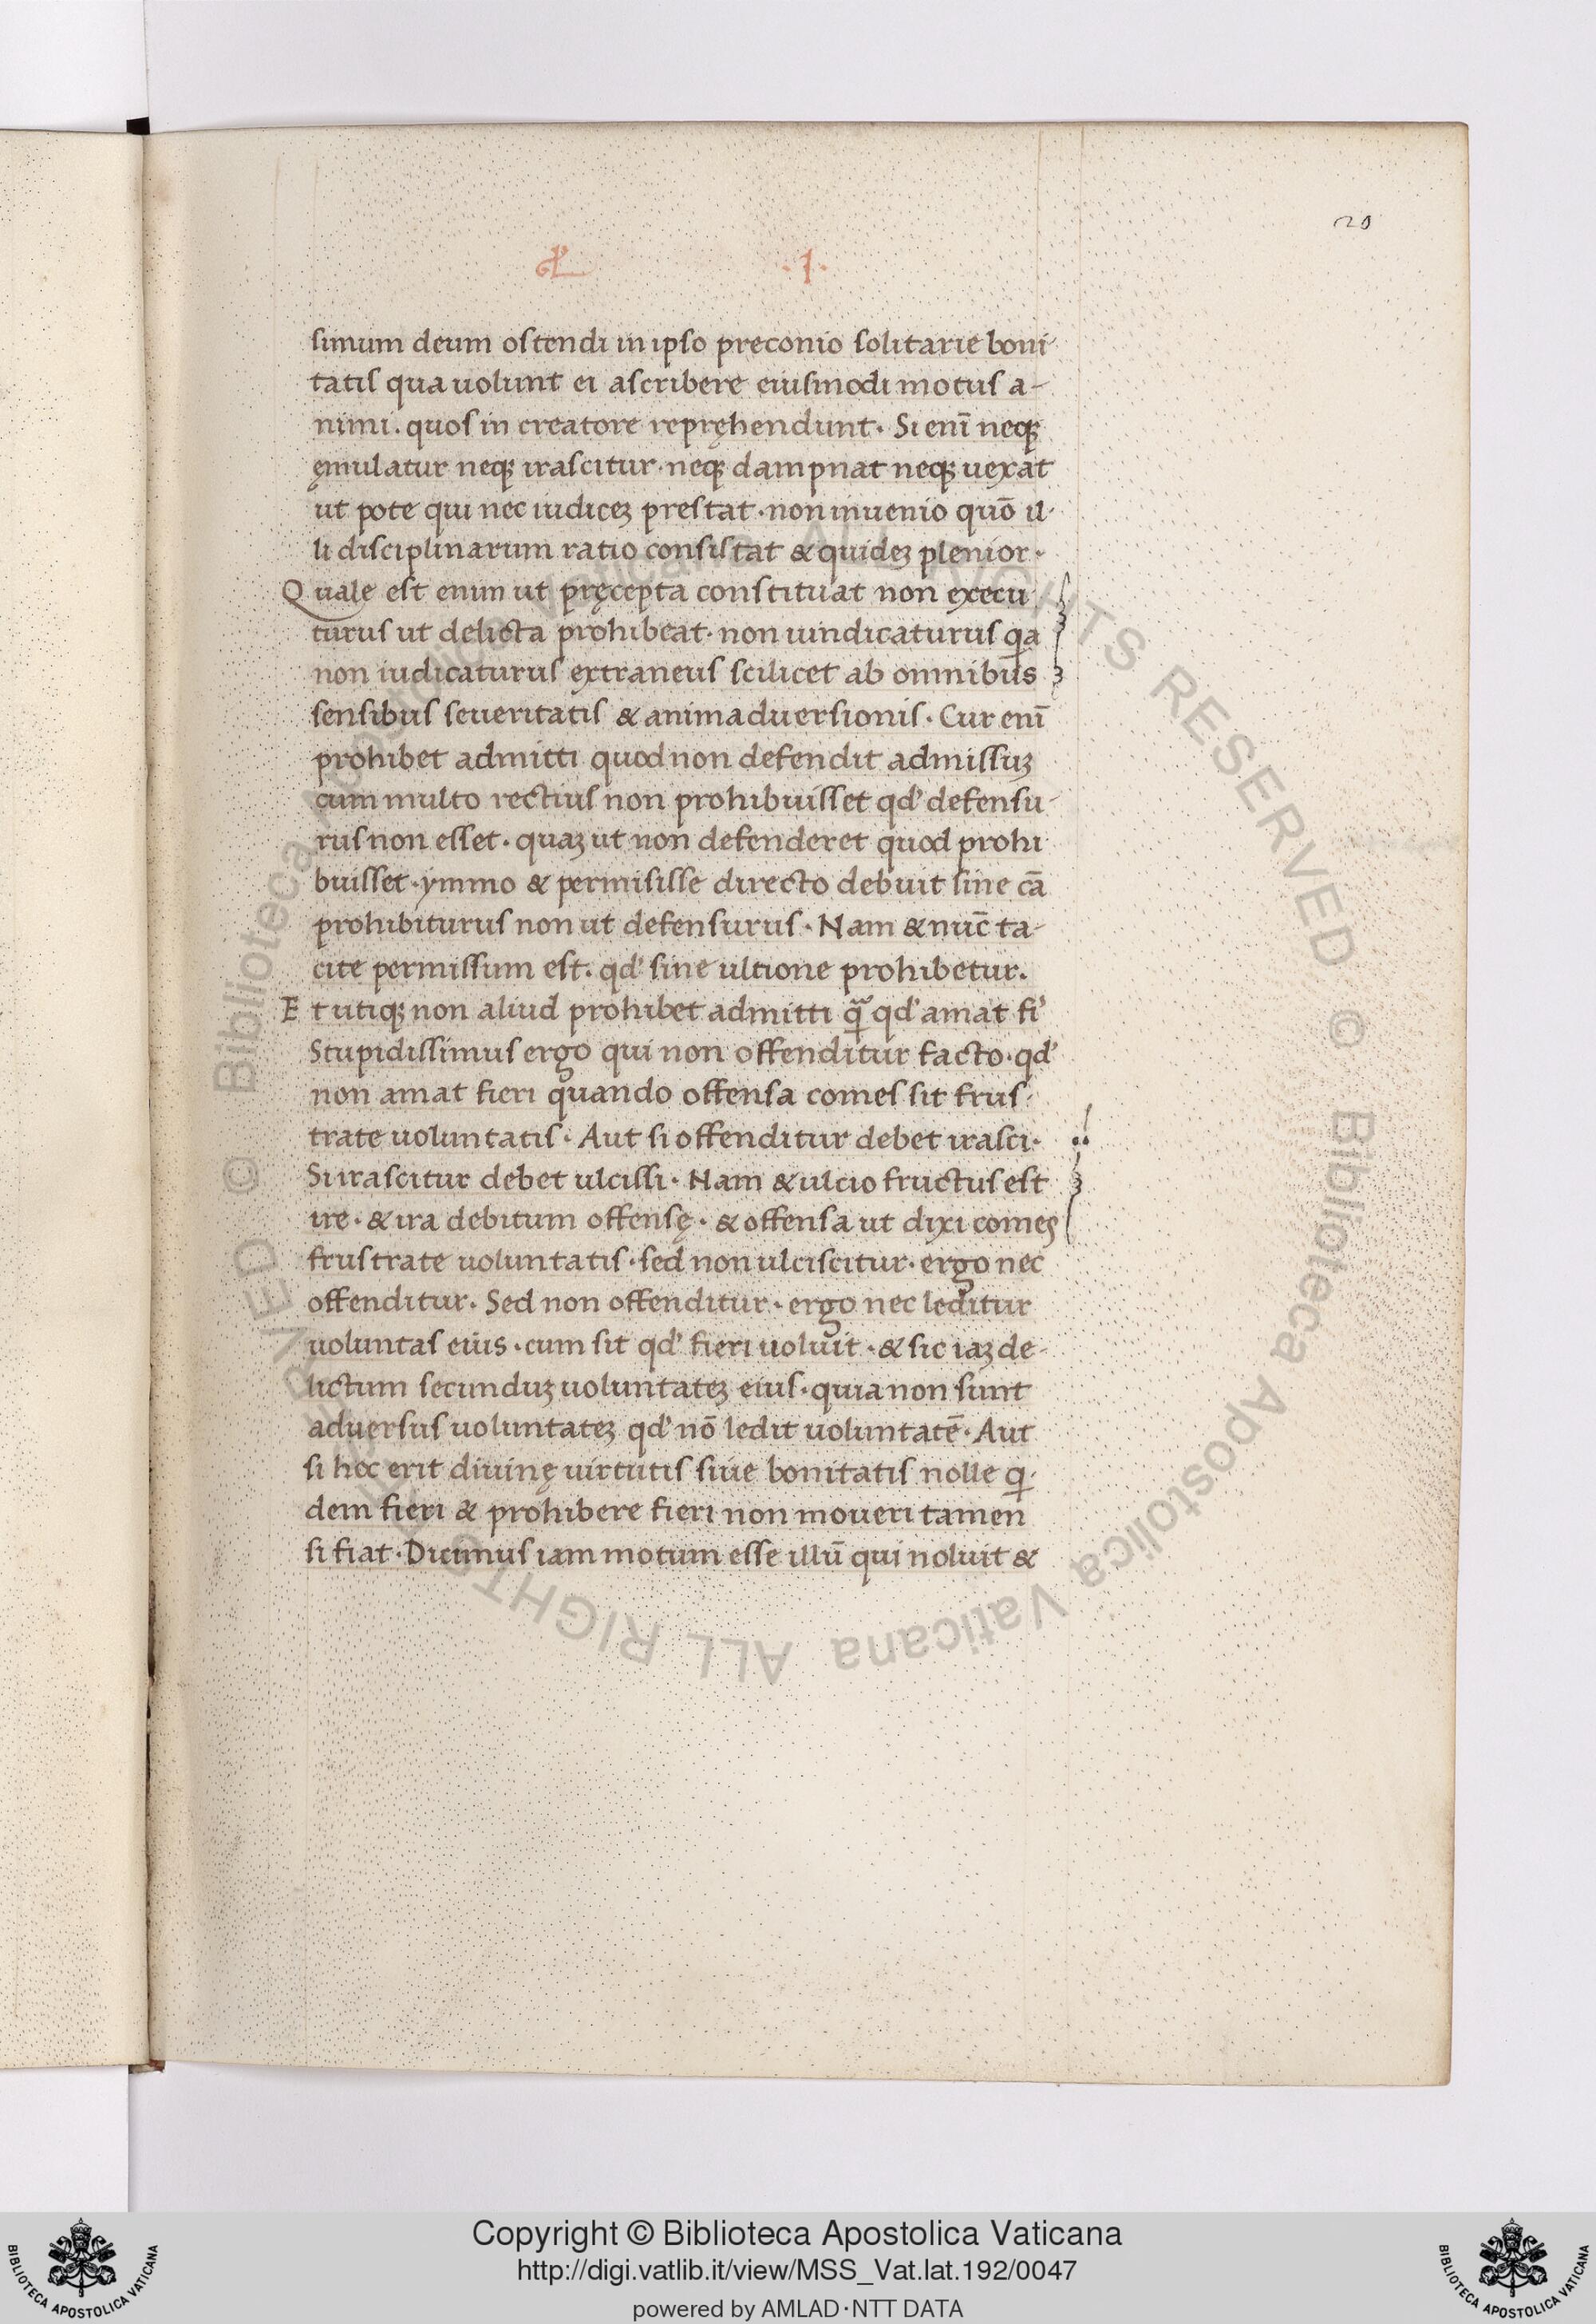 20
·I·
simum deum ostendi in ipso preconio solitarie boni-
tatis qua uolunt ei ascribere eiusmodi motus a-
nimi. quos in creatore repręhendunt. Si enī neqʒ
ęmulatur neqʒ irascitur. neqʒ dampnat neqʒ uexat
ut pote qui nec iudiceʒ prestat. non inuenio quō il-
li disciplinarum ratio consistat & quideʒ plenior.
Quale est enim ut pręcepta constituat non execu-
turus ut delicta prohibeat. non uindicaturus qa
non iudicaturus extraneus scilicet ab omnibus
sensibus seueritatis & animaduersionis. Cur enī
prohibet admitti quod non defendit admissuʒ
cum multo rectius non prohibuisset qd' defensu-
rus non esset. quaʒ ut non defenderet quod prohi
buisset. ymmo & permisisse directo debuit sine cā
prohibiturus non ut defensurus. Nam & nūc ta-
cite permissum est. qd' sine ultione prohibetur.
Et utiqʒ non aliud prohibet admitti qͣ qd' amat fi'
Stupidissimus ergo qui non offenditur facto. qd'
non amat fieri quando offensa comes sit frus-
trate uoluntatis. Aut si offenditur debet irasci.
Si irascitur debet ulcissi. Nam & ulcio fructus est
ire. & ira debitum offensę. & offensa ut dixi comes
frustrate uoluntatis. sed non ulciscitur. ergo nec
offenditur. Sed non offenditur. ergo nec leditur
uoluntas eius. cum sit qd' fieri uoluit. & sic iaʒ de-
lictum secunduʒ uoluntateʒ eius. quia non sunt
aduersus uoluntateʒ qd' nō ledit uoluntatē. Aut
si hoc erit diuinę uirtutis siue bonitatis nolle q-
dem fieri & prohibere fieri non moueri tamen
si fiat. Dicimus iam motum esse illū qui noluit &
© Biblioteca Apostolica Vaticana ALL RIGHTS RESERVED © Biblioteca Apostolica Vaticana ALL RIGHTS RESERVED
Copyright © Biblioteca Apostolica Vaticana
http://digi.vatlib.it/view/MSS_Vat.lat.192/0047
powered by AMLAD·NTT DATA
BIBLIOTECA APOSTOLICA VATICANA
BIBLIOTECA APOSTOLICA VATICANA